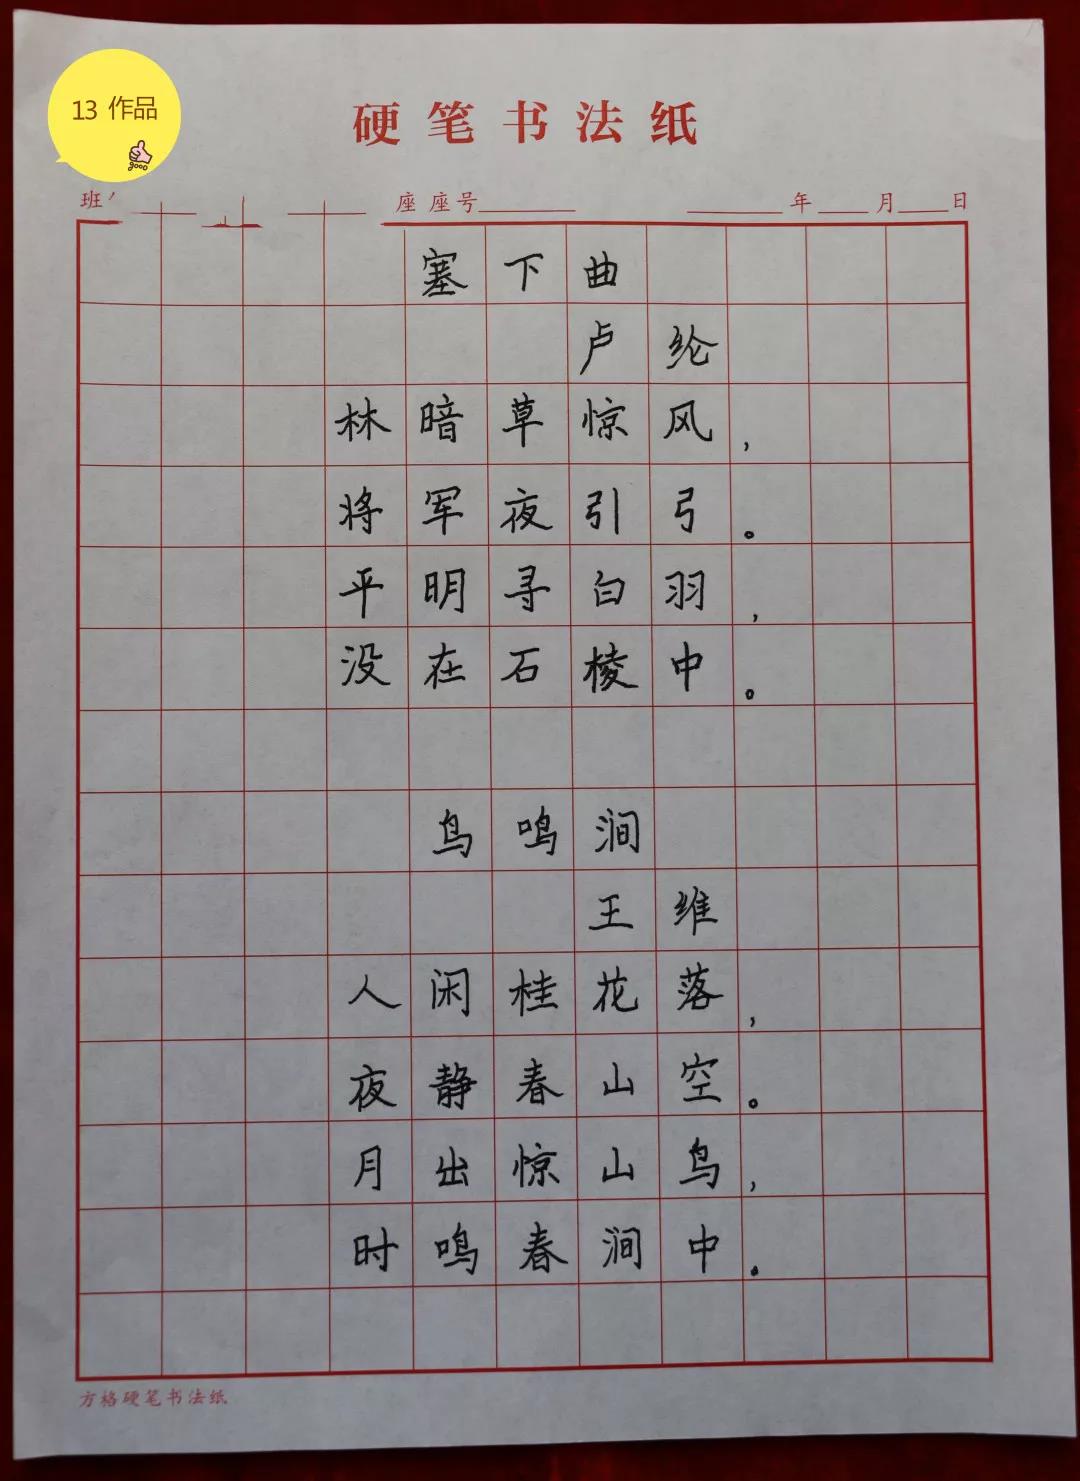 13 作品
good
硬笔书法纸
班
座 座号
年 月 日
塞下曲
卢纶
林暗草惊风，
将军夜引弓。
平明寻白羽，
没在石棱中。
鸟鸣涧
王维
人闲桂花落，
夜静春山空。
月出惊山鸟，
时鸣春涧中。
方格硬笔书法纸